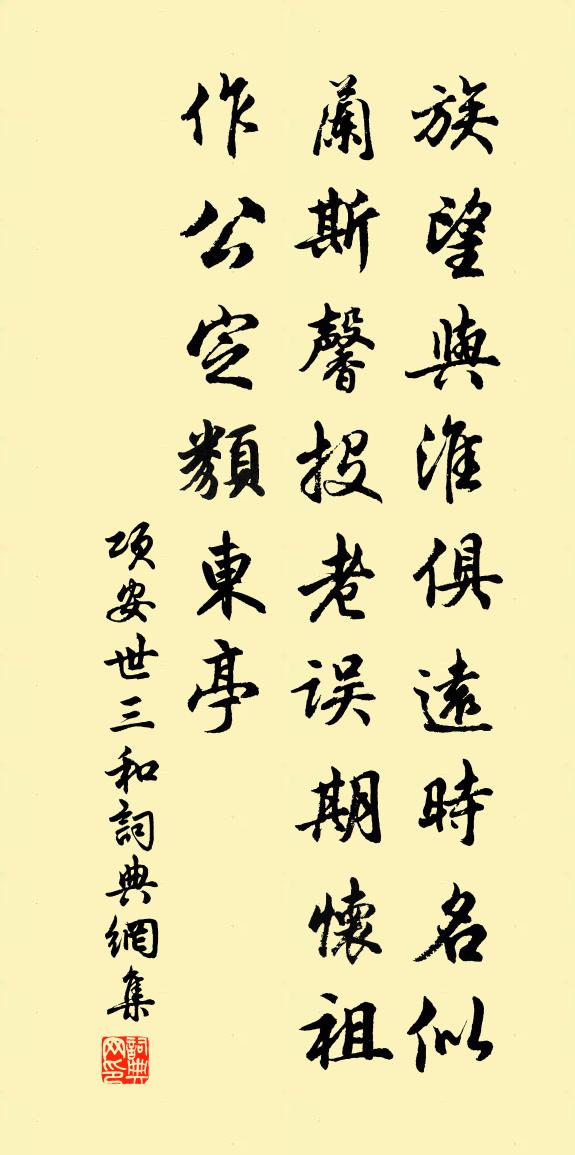 族望與淮俱遠時名似
蘭斯馨投老誤期懷祖
作公定類東亭
項安世三和詞典網集
詞典
网印